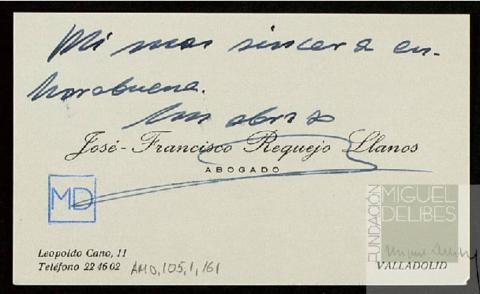 Mi mas sincera en-
horabuena.
Un abrazo
José-Francisco Requejo Llanos
ABOGADO
MD
Leopoldo Cano, 11
Teléfono 22 46 02
AMD,105,1,161
FUNDACIÓN
MIGUEL
DELIBES
VALLADOLID